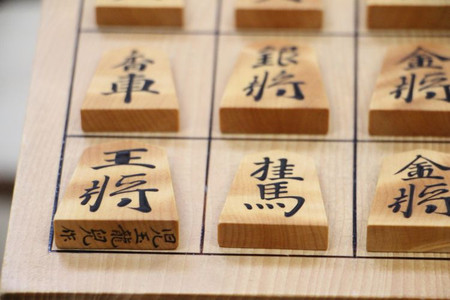 香車
銀将
金将
王将
桂馬
金将
児玉龍兒作